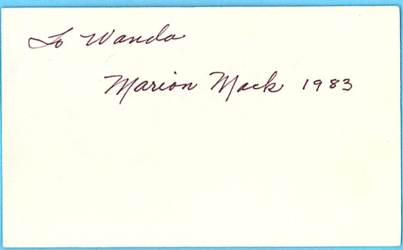 To Wanda
Marion Mack 1983